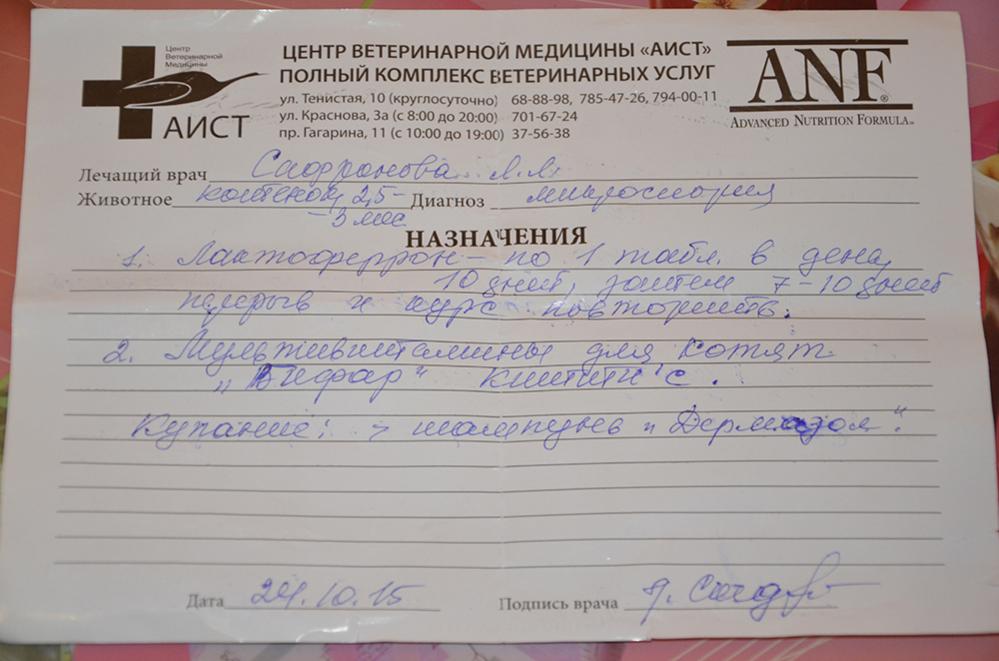 Центр
Ветеринарной
Медицины
АИСТ
ЦЕНТР ВЕТЕРИНАРНОЙ МЕДИЦИНЫ «АИСТ»
ПОЛНЫЙ КОМПЛЕКС ВЕТЕРИНАРНЫХ УСЛУГ
ул. Тенистая, 10 (круглосуточно) 68-88-98, 785-47-26, 794-00-11
ул. Краснова, 3а (с 8:00 до 20:00) 701-67-24
пр. Гагарина, 11 (с 10:00 до 19:00) 37-56-38
ANF®
ADVANCED NUTRITION FORMULA™
Лечащий врач Сафронова Л.Л.
Животное котенок 2,5- Диагноз микроспория
- 3 мес
НАЗНАЧЕНИЯ
1. Лактоферрон - по 1 табл. в день,
10 дней, затем 7-10 дней
перерыв и курс повторить.
2. Мультивитамины для котят
"Бифар" Китти'с.
Купание: шампунь "Дермазол".
Дата 24.10.15
Подпись врача